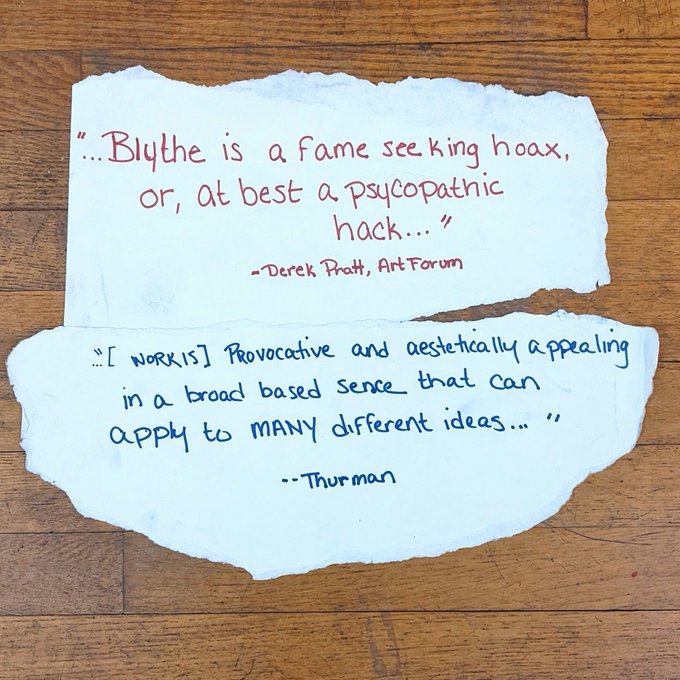 "...Blythe is a fame seeking hoax,
or, at best a psycopathic
hack..."
~Derek Pratt, ArtForum
"...[WORK IS] Provocative and aestetically appealing
in a broad based sence that can
apply to MANY different ideas..."
--Thurman